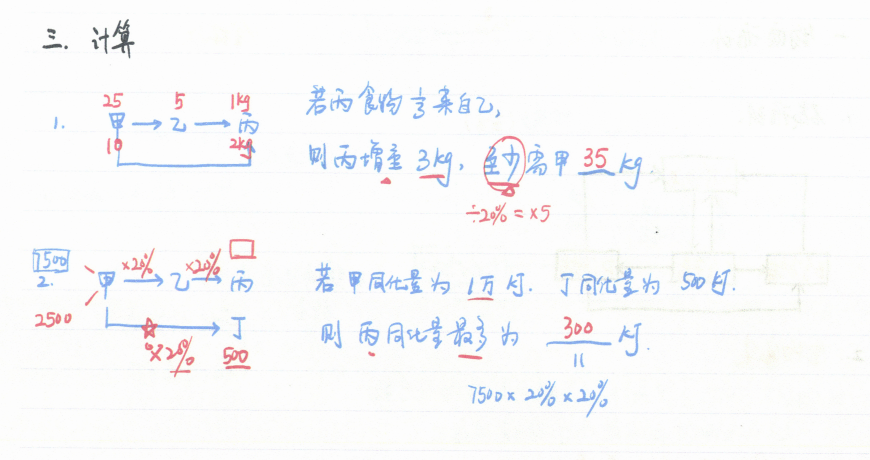 三. 计算
25 5 1kg
1. 甲 → 乙 → 丙
10 2kg
若丙食物 1/3 来自乙,
则丙增重 3kg, 至少需甲 35 kg.
÷20% = ×5
7500 ×20% ×20%
2. 甲 → 乙 → 丙
2500 → 丁
×20% 500
若甲同化量为 1万 kJ. 丁同化量为 500 kJ.
则 丙同化量最多为 300 kJ.
7500 × 20% × 20%